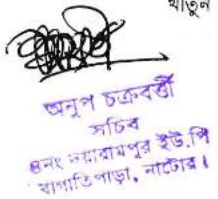 খাতুন
অনুপ চক্রবর্তী
সচিব
৪নং দয়ারামপুর ইউ.পি
বাগাতিপাড়া, নাটোর।